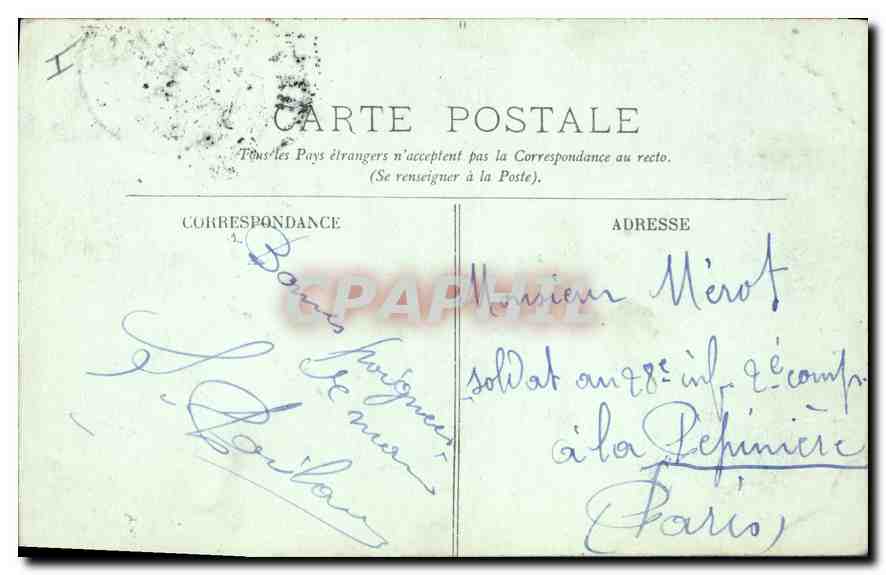 I
CARTE POSTALE
Tous les Pays étrangers n'acceptent pas la Correspondance au recto.
(Se renseigner à la Poste).
CORRESPONDANCE
ADRESSE
Bonnes poignées
de main
CPAPHIL
Monsieur Mérot
soldat au 28e inf. 2e comp.
à la Pépinière
(Paris)